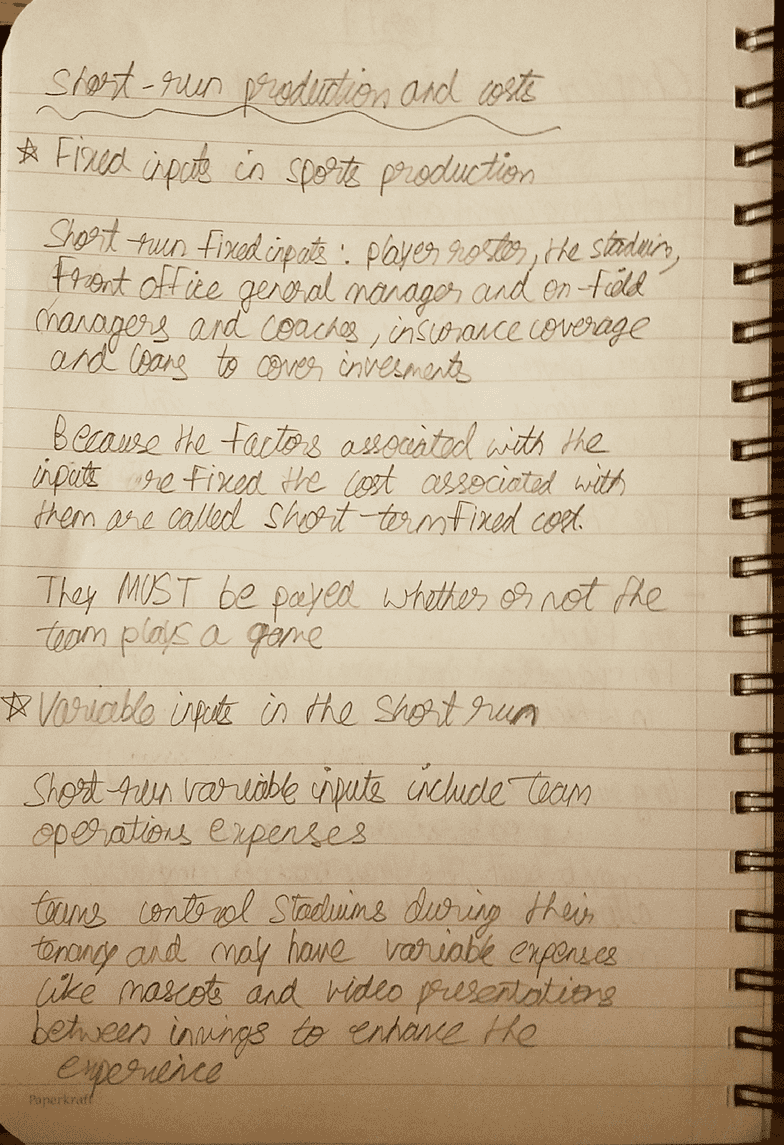 Short-run production and costs
☆ Fixed inputs in sports production
Short-run fixed inputs: player roster, the staduim,
Front office general manager and on-field
managers and coaches, insurance coverage
and loans to cover invesments
Because the factors associated with the
inputs re fixed the cost associated with
them are called Short-term Fixed cost.
They MUST be payed whether or not the
team plays a game
☆ Variable inputs in the short run
Short-run variable inputs include team
operations expenses
teams control Staduims during their
tenancy and may have variable expenses
like mascots and video presentations
between innings to enhance the
experience
Paperkraft